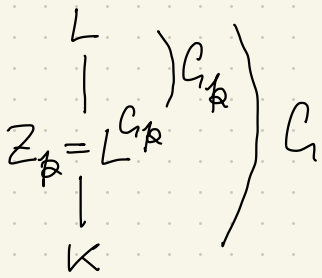 L
G_𝔭
Z_𝔭 = L^{G_𝔭} G
K